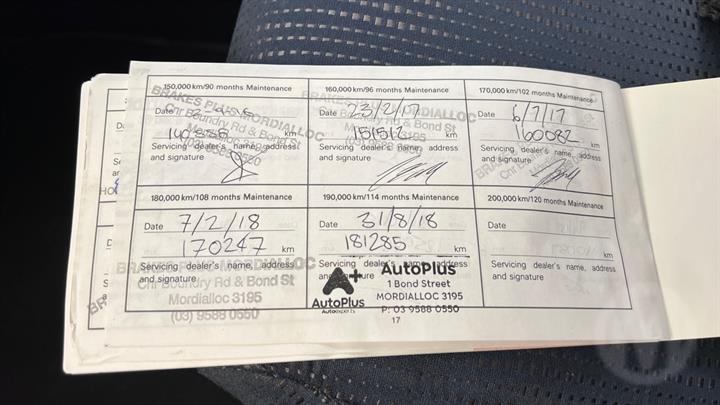 150,000 km/90 months Maintenance
BRAKES PLUS MORDIALLOC
Cnr Boundry Rd & Bond St
Date
km
Servicing dealer's name, address
and signature
160,000 km/96 months Maintenance
Date 23/2/17
151512 km
Servicing dealer's name, address
and signature
170,000 km/102 months Maintenance
Date 6/7/17
160082 km
Servicing dealer's name, address
and signature
180,000 km/108 months Maintenance
Date 7/2/18
170247 km
Servicing dealer's name, address
and signature
BRAKES PLUS MORDIALLOC
Cnr Boundry Rd & Bond St
Mordialloc 3195
(03) 9588 0550
190,000 km/114 months Maintenance
Date 31/8/18
181285 km
Servicing dealer's name, address
and signature
A+
AutoPlus
Autoexperts
AutoPlus
1 Bond Street
MORDIALLOC 3195
P: 03 9588 0550
200,000 km/120 months Maintenance
Date
km
Servicing dealer's name, address
and signature
17